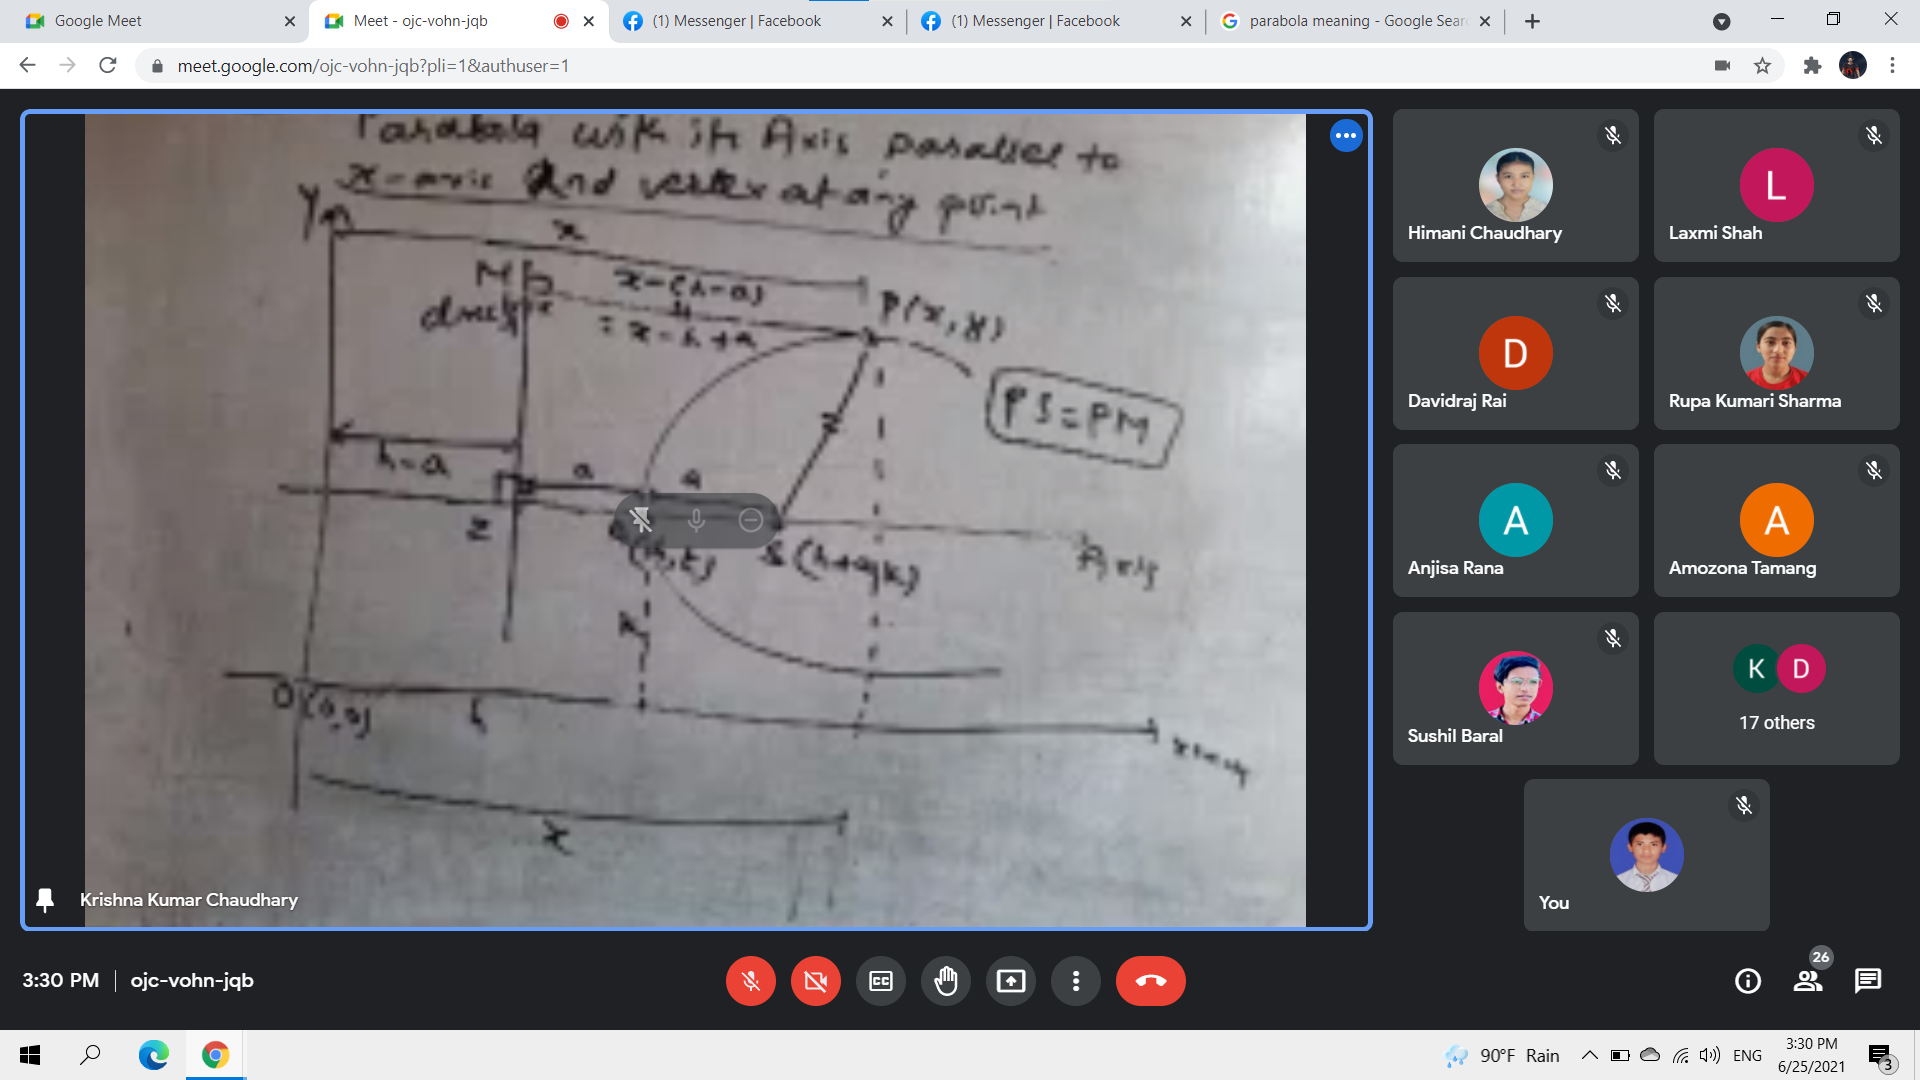 Google Meet
Meet - ojc-vohn-jqb
(1) Messenger | Facebook
(1) Messenger | Facebook
parabola meaning - Google Sear
meet.google.com/ojc-vohn-jqb?pli=1&authuser=1
Parabola with its Axis parallel to
x-axis and vertex at any point
Y
x
M
x-(h-a)
P(x,y)
= x-h+a
PS=PM
h-a
a
a
Z
(h,k)
S(h+a,k)
Axis
k
O(0,0)
h
x
Krishna Kumar Chaudhary
Himani Chaudhary
L
Laxmi Shah
D
Davidraj Rai
Rupa Kumari Sharma
A
Anjisa Rana
A
Amozona Tamang
Sushil Baral
K D
17 others
You
3:30 PM | ojc-vohn-jqb
CC
26
90°F Rain
ENG
3:30 PM
6/25/2021
3